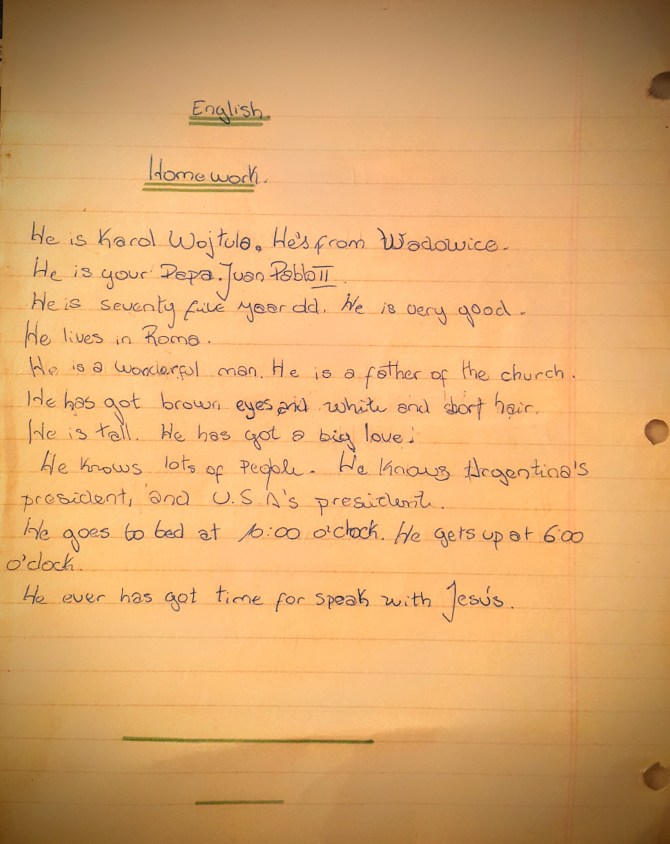 English
Homework.
He is Karol Wojtula. He's from Wadowice.
He is your Papa. Juan Pablo II
He is seventy five year old. He is very good.
He lives in Roma.
He is a wonderful man. He is a father of the church.
He has got brown eyes and white and short hair.
He is tall. He has got a big love.
He knows lots of people. He knows Argentina's
president, and U.S.A's president.
He goes to bed at 10:00 o'clock. He gets up at 6:00
o'clock.
He ever has got time for speak with Jesús.